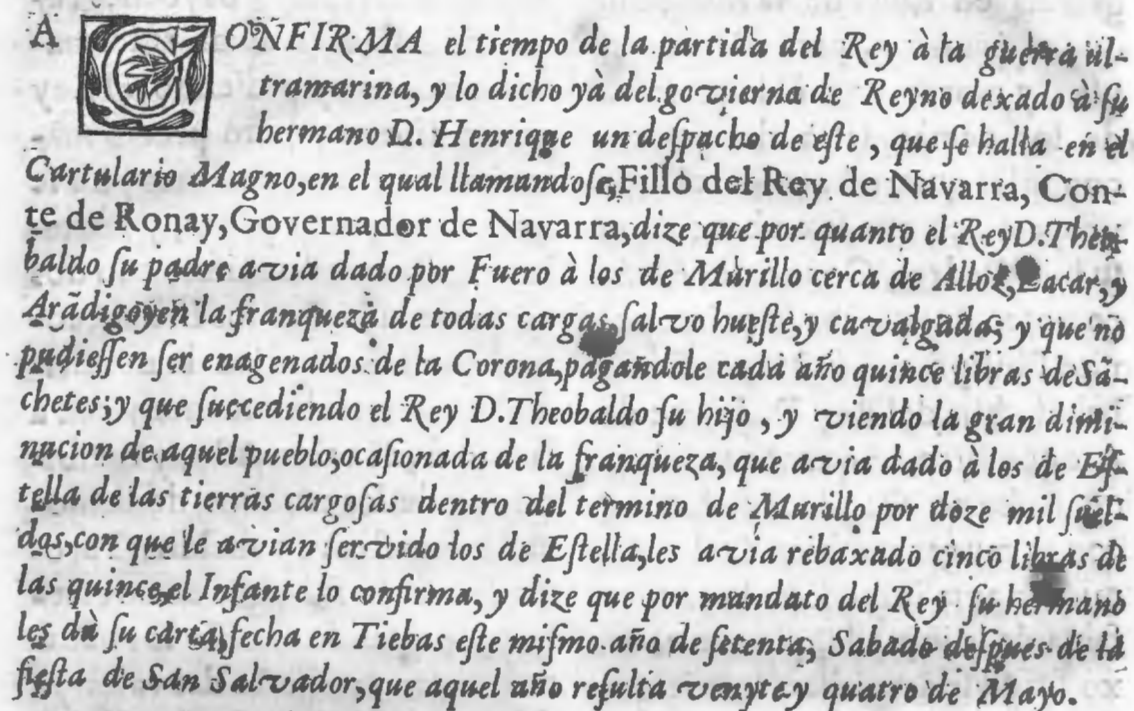 A CONFIRMA el tiempo de la partida del Rey à la guerra ul-
tramarina, y lo dicho yà del govierna de Reyno dexado à ſu
hermano D. Henrique un deſpacho de eſte, que ſe halla en el
Cartulario Magno, en el qual llamandoſe, Fillo del Rey de Navarra, Con-
te de Ronay, Governador de Navarra, dize que por quanto el Rey D. Theo-
baldo ſu padre avia dado por Fuero à los de Murillo cerca de Alloz, Lacar, y
Arãdigoyen la franqueza de todas cargas, ſalvo hueſte, y cavalgada; y que no
pudieſſen ſer enagenados de la Corona, pagandole cada año quince libras de Sã-
chetes; y que ſuccediendo el Rey D. Theobaldo ſu hijo, y viendo la gran dimi-
nucion de aquel pueblo, ocaſionada de la franqueza, que avia dado à los de Eſ-
tella de las tierras cargoſas dentro del termino de Murillo por doze mil ſuel-
dos, con que le avian ſervido los de Eſtella, les avia rebaxado cinco libras de
las quince, el Infante lo confirma, y dize que por mandato del Rey ſu hermano
les dà ſu carta, fecha en Tiebas eſte miſmo año de ſetenta, Sabado deſpues de la
fieſta de San Salvador, que aquel año reſulta venyte y quatro de Mayo.